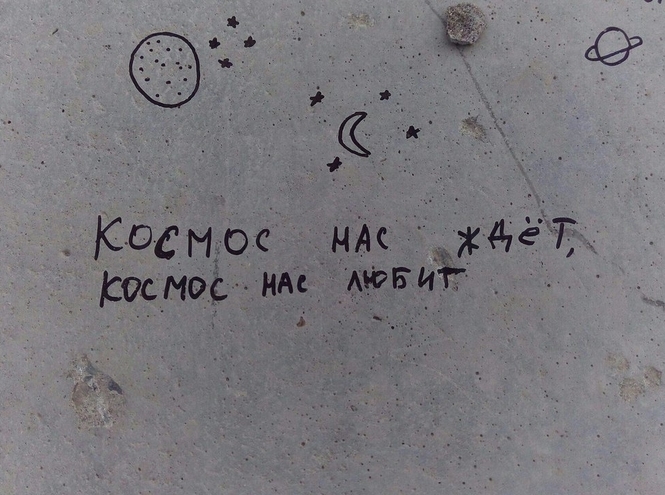 КОСМОС НАС ЖДЁТ,
КОСМОС НАС ЛЮБИТ